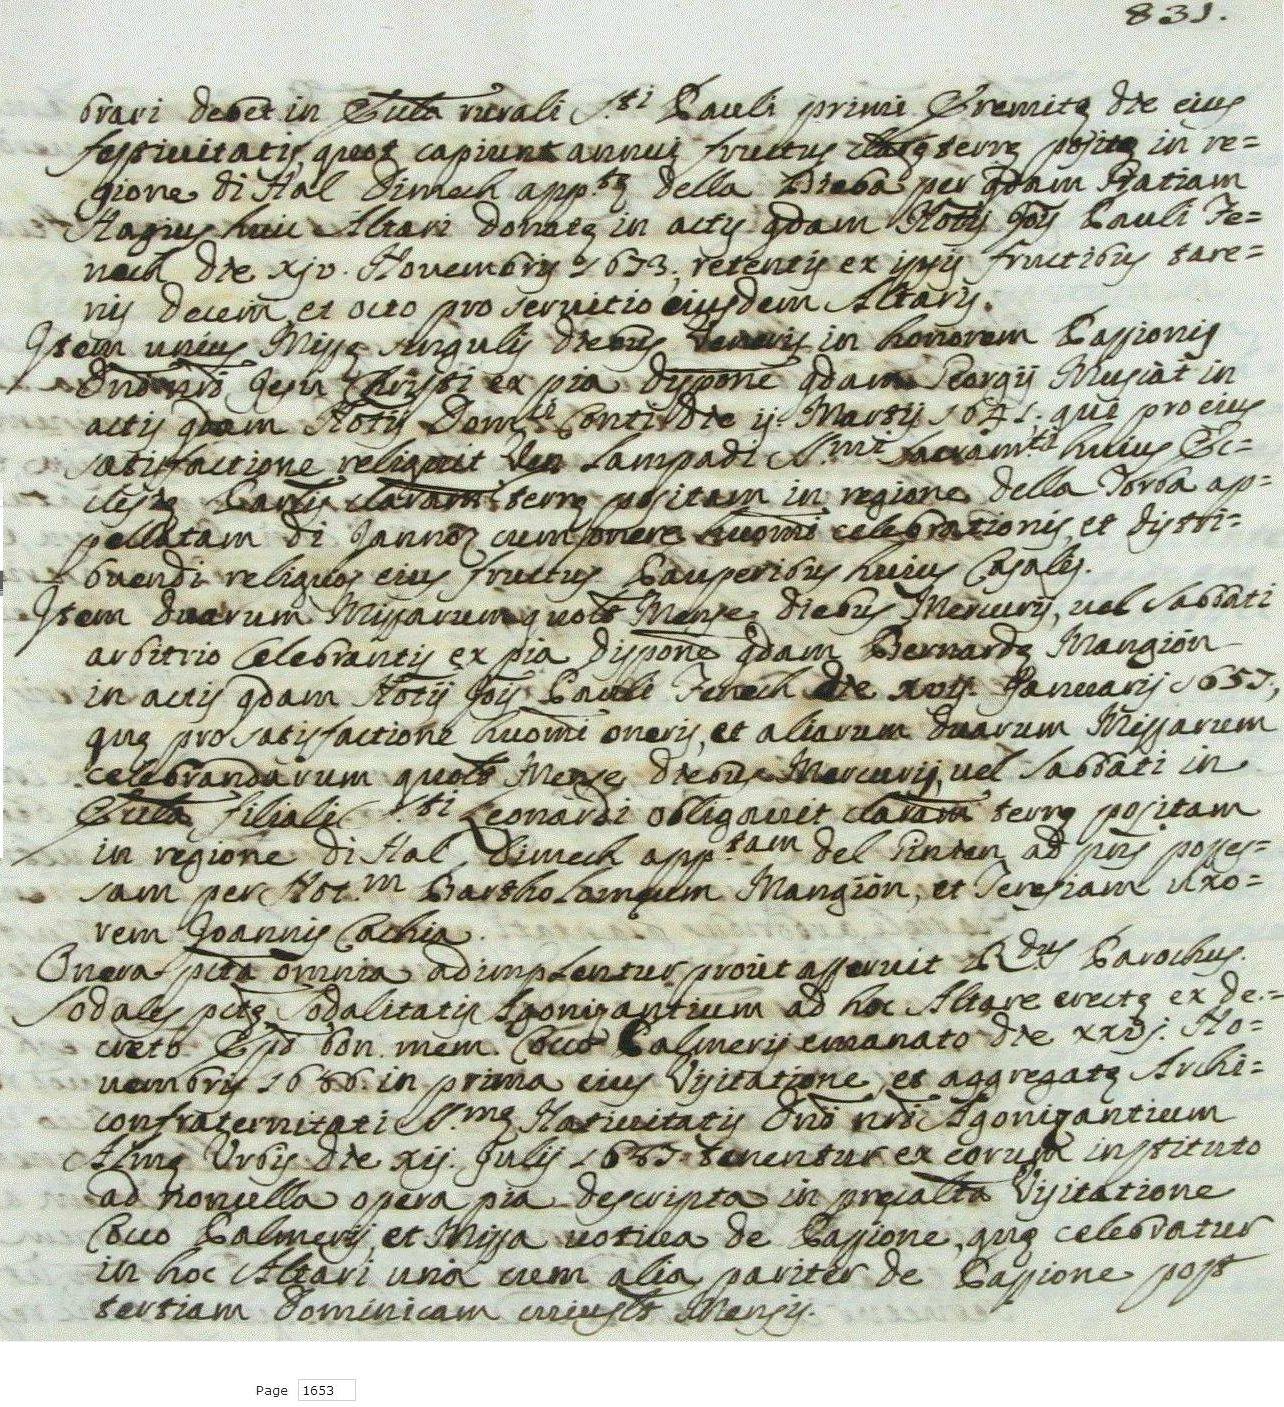 831.
brari debet in Eccla rurali S.ti Pauli primi Eremitę die eius
festiuitatis, quot capiunt annui fructus clausę terrę positę in re=
gione di Hal Dimech app.tę della Bieba per qdam Gratiam
Hagius huic Altari donatę in actis qdam Notij Jois Pauli Fe=
nech die xjv. Novembris 1673, retentis ex ipsis fructibus tare=
nis decem et octo pro seruitio eiusdem Altaris.
Item unius Missę singulis diebus Veneris in honorem Passionis
Dni nri Jesu Christi ex pia dispone qdam Georgij Musiàt in
actis qdam Notij Dom.ci Conti die ij. Martij 1641. qui pro eius
satisfactione reliquit Ven Lampadi S.mi Sacram.ti huius Ec=
clesię Partis clausam terrę positam in regione della Torba ap=
pellatam di Jannoz cum onere huomi celebrationis, et distri=
buendi reliquos eius fructus Pauperibus huius Casalis.
Item duarum Missarum quolt Mense diebus Mercurij, uel Sabbati
arbitrio Celebrantis ex pia dispone qdam Bernardę Mangiòn
in actis qdam Notij Jois Pauli Fenech die xvij. Januarij 1657,
quę pro satisfactione huomi oneris, et aliarum duarum Missarum
celebrandarum quolt Mense diebus Mercurij, uel Sabbati in
Eccla filiali S.ti Leonardi obligauit clausam terrę positam
in regione di Hal Dimech app.tam del ad pns posses=
sam per Not.m Bartholomęum Mangiòn, et Teresiam uxo=
rem Joannis Cachia.
Onera pcta omnia adimplentur prout asseruit R.dus Parochus.
Sodales pctę Sodalitatis Agonizantium ad hoc Altare erectę ex de=
creto Epi bon. mem. Cocco Palmerij emanato die xxvj. No=
uembris 1686 in prima eius Visitatione, et aggregatę Archi=
confraternitati S.mę Natiuitatis Dni nri Agonizantium
Almę Urbis die xij. Julij 1687 tenentur ex eorum instituto
ad nonulla opera pia descripta in precalta Visitatione
Cocco Palmerij, et Missa uotiua de Passione, quę celebratur
in hoc Altari unà cum alia pariter de Passione post
tertiam Dominicam cuiuslt Mensis.
Page 1653